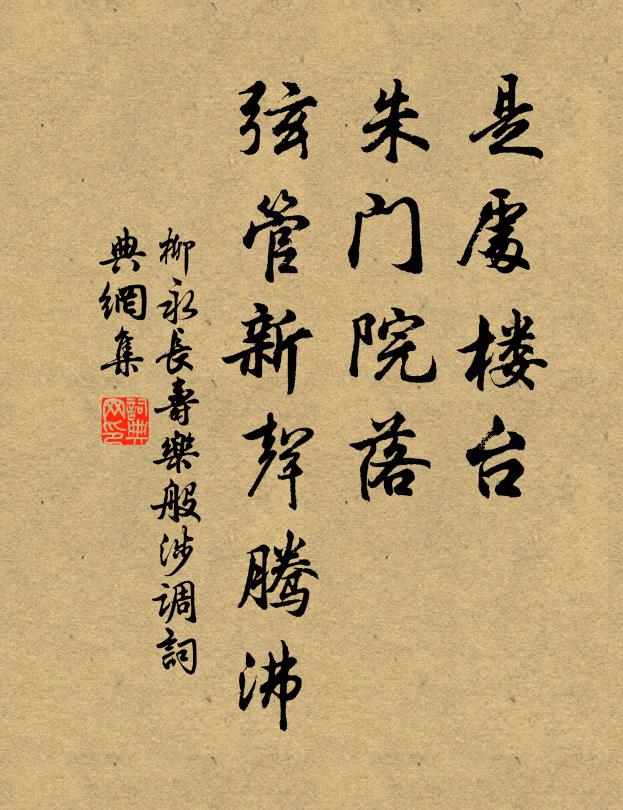 是處楼台
朱门院落
弦管新聲腾沸
柳永長壽樂般涉调詞
典網集
詞典
网印